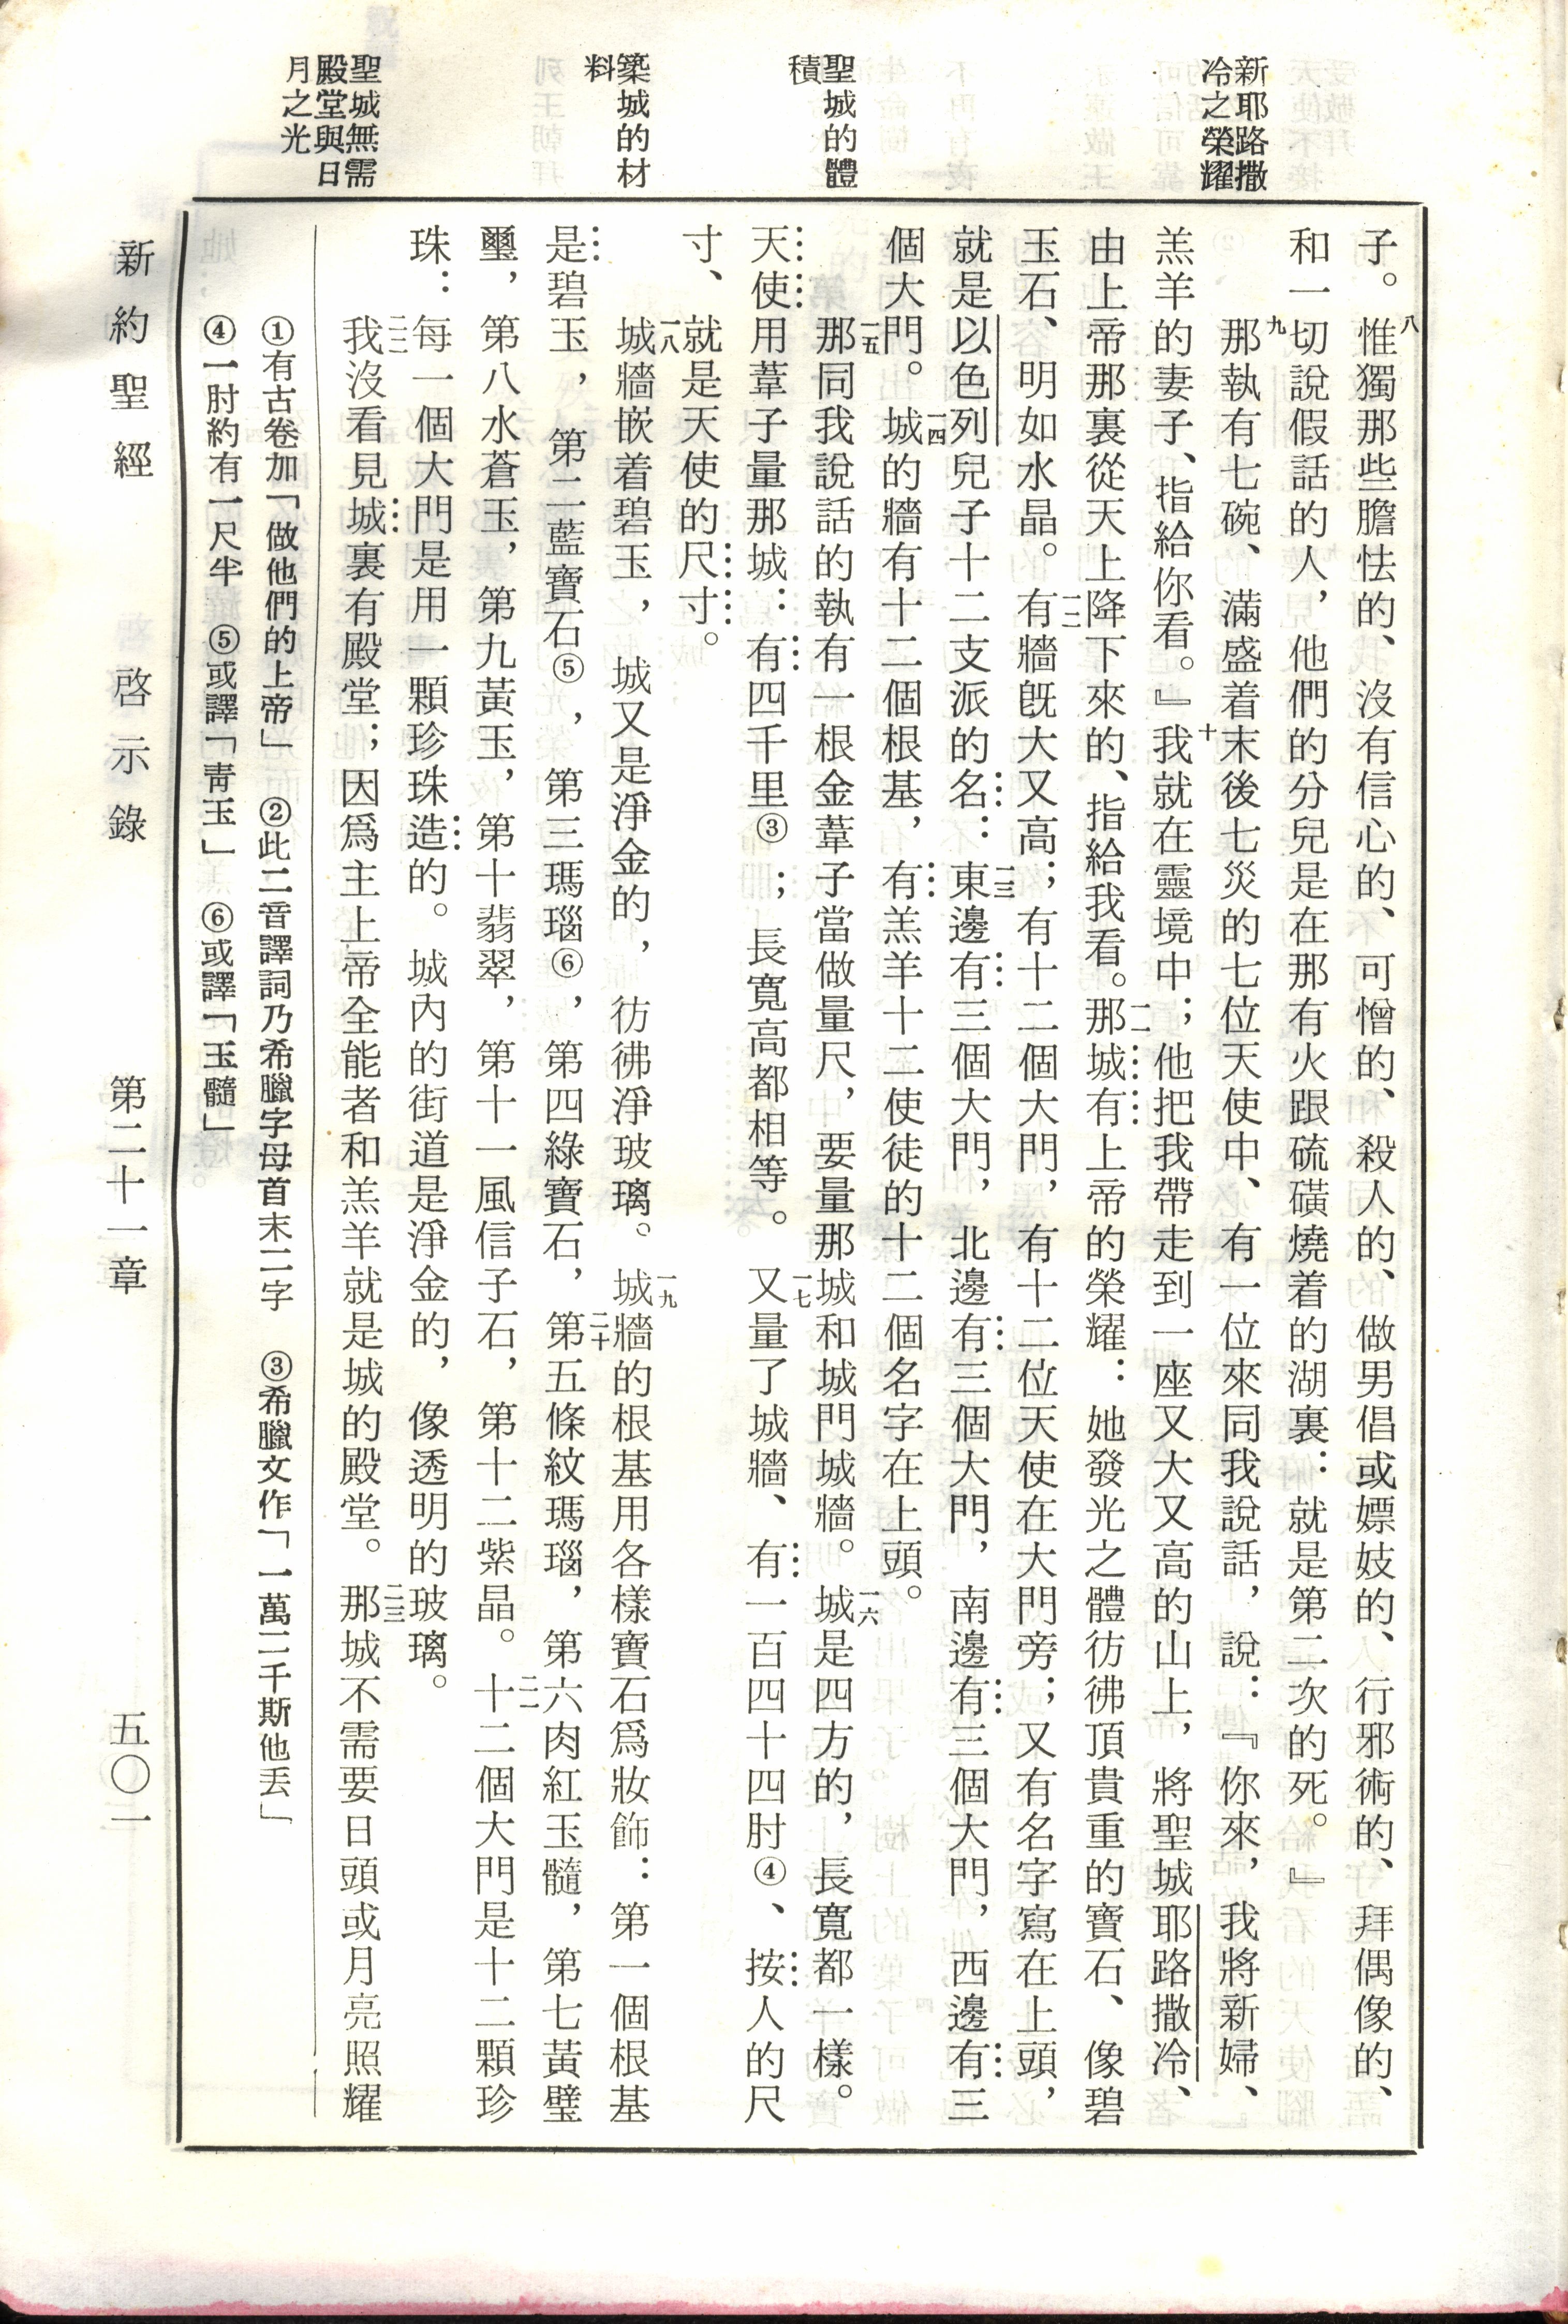 新耶路撒
冷之榮耀
聖城的體
積
築城的材
料
聖城無需
殿堂與日
月之光
子。八惟獨那些膽怯的、沒有信心的、可憎的、殺人的、做男倡或嫖妓的、行邪術的、拜偶像的、
和一切說假話的人，他們的分兒是在那有火跟硫磺燒着的湖裏：就是第二次的死。』
九那執有七碗、滿盛着末後七災的七位天使中、有一位來同我說話，說：『你來，我將新婦、
羔羊的妻子、指給你看。』十我就在靈境中；他把我帶走到一座又大又高的山上，將聖城耶路撒冷、
由上帝那裏從天上降下來的、指給我看。一一那城有上帝的榮耀：她發光之體彷彿頂貴重的寶石、像碧
玉石、明如水晶。一二有牆旣大又高；有十二個大門，有十二位天使在大門旁；又有名字寫在上頭，
就是以色列兒子十二支派的名：一三東邊有三個大門，北邊有三個大門，南邊有三個大門，西邊有三
個大門。一四城的牆有十二個根基，有羔羊十二使徒的十二個名字在上頭。
一五那同我說話的執有一根金葦子當做量尺，要量那城和城門城牆。一六城是四方的，長寬都一樣。
天使用葦子量那城：有四千里③；長寬高都相等。一七又量了城牆、有一百四十四肘④、按人的尺
寸、就是天使的尺寸。
一八城牆嵌着碧玉，城又是淨金的，彷彿淨玻璃。一九城牆的根基用各樣寶石爲妝飾：第一個根基
是碧玉，第二藍寶石⑤，第三瑪瑙⑥，第四綠寶石，二十第五條紋瑪瑙，第六肉紅玉髓，第七黃璧
璽，第八水蒼玉，第九黃玉，第十翡翠，第十一風信子石，第十二紫晶。二一十二個大門是十二顆珍
珠：每一個大門是用一顆珍珠造的。城內的街道是淨金的，像透明的玻璃。
二二我沒看見城裏有殿堂；因爲主上帝全能者和羔羊就是城的殿堂。二三那城不需要日頭或月亮照耀
①有古卷加「做他們的上帝」　②此二音譯詞乃希臘字母首末二字　③希臘文作「一萬二千斯他丟」
④一肘約有一尺半　⑤或譯「靑玉」　⑥或譯「玉髓」
新約聖經　啓示錄　第二十一章　五〇一